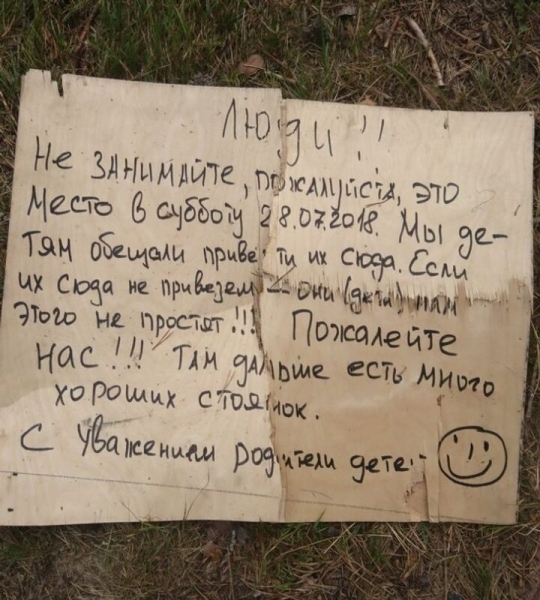 Люди!!
Не занимайте, пожалуйста, это
место в субботу 28.07.2018. Мы де-
тям обещали привезти их сюда. Если
их сюда не привезем — они (дети) нам
этого не простят!!! Пожалейте
нас!!! Там дальше есть много
хороших стоянок.
С уважением родители детей